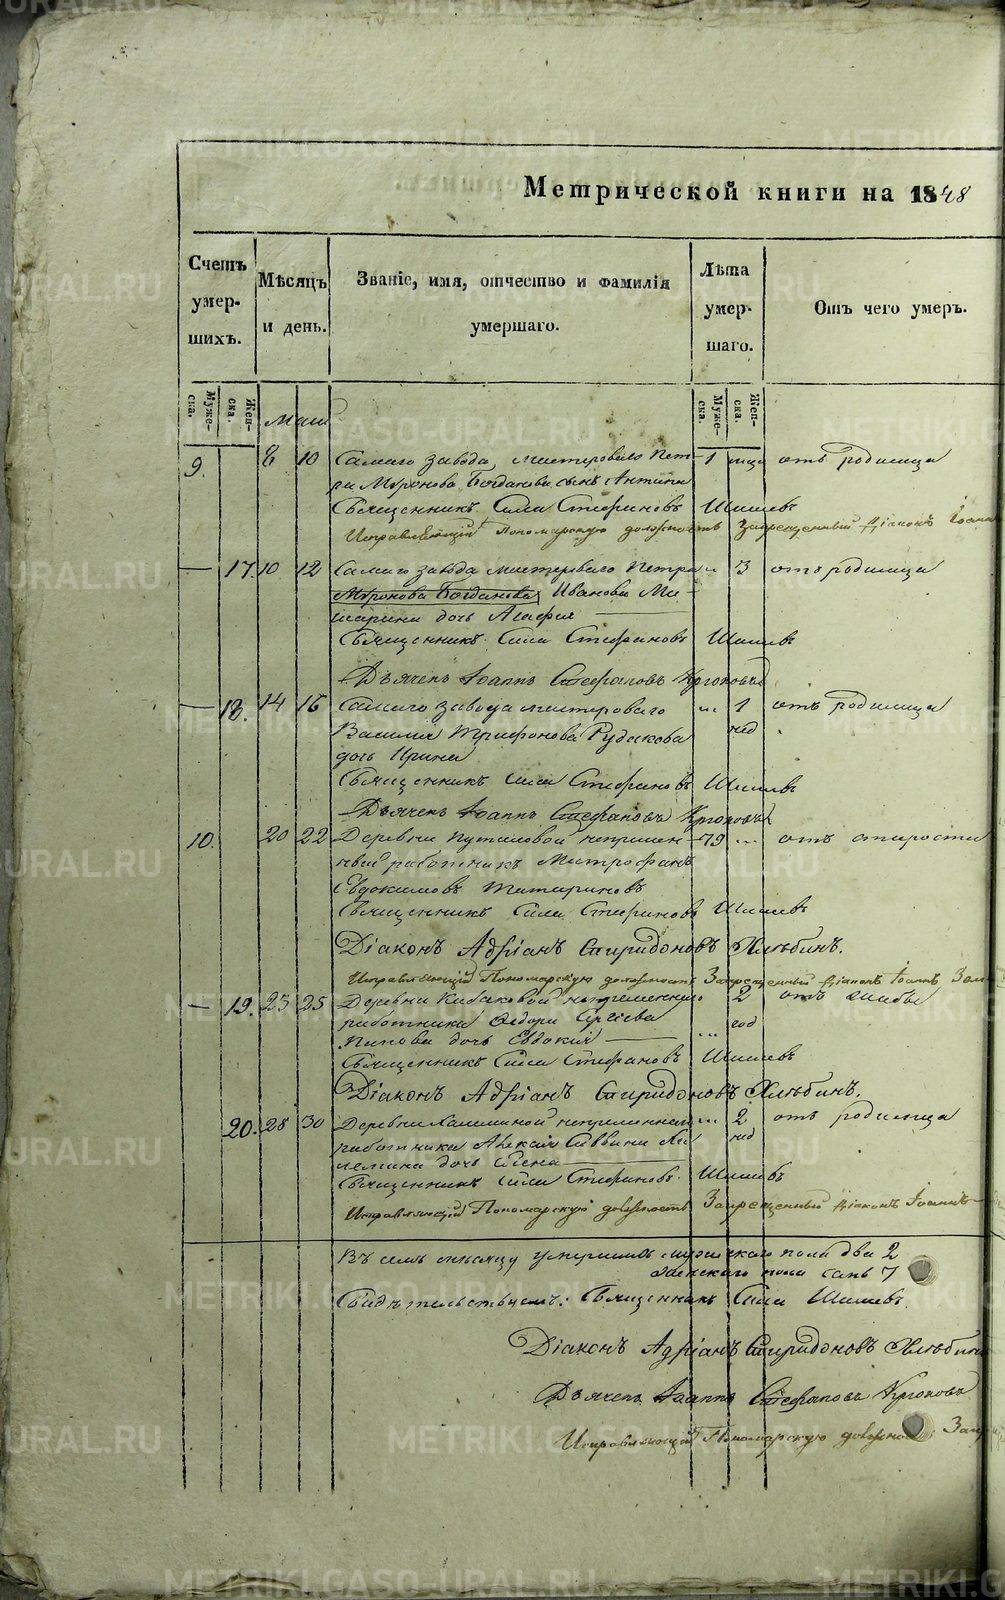 Метрической книги на 1848
Счетъ умер- шихъ.
Мѣсяцъ и день.
Званіе, имя, отчество и фамилія умершаго.
Лѣта умер- шаго.
Отъ чего умеръ.
Муже- ска.
Жен- ска.
Муже- ска.
Жен- ска.
Маій
9. 8 10 Самаго завода мастероваго Пет- 1 отъ родимца
ра Миронова Богданова сынъ Антипа
Священникъ Сила Стефановъ Шишевъ
Исправляющій Пономарскую должность Запрещенный Діаконъ Іоаннъ
— 17. 10 12 Самаго завода мастероваго Петра " 3 отъ родимца
Миронова Богданова Иванова Ми-
шарина дочь Агафія
Священникъ Сила Стефановъ Шишевъ
Дьячекъ Іоаннъ Стефановъ Крюковъ
— 18. 14 16 Самаго завода мастероваго " 1 отъ родимца
Василія Трифонова Рудакова нед
дочь Ирина
Священникъ Сила Стефановъ Шишевъ
Дьячекъ Іоаннъ Стефановъ Крюковъ
10. 20 22 Деревни Путиловой непремен- 79 " отъ старости
ный работникъ Митрофанъ
Евдокимовъ Татариновъ
Священникъ Сила Стефановъ Шишевъ
Діаконъ Адріанъ Спиридоновъ Хлѣбинъ.
Исправляющій Пономарскую должность Запрещенный Діаконъ Іоаннъ
— 19. 23 25 Деревни непременнаго 2 отъ
работника Федора Сергіева год
Попова дочь Евдокія "
Священникъ Сила Стефановъ Шишевъ
Діаконъ Адріанъ Спиридоновъ Хлѣбинъ.
20. 28 30 Деревни непременнаго " 2 отъ родимца
работника Алексія Саввина нед
дочь Елена
Священникъ Сила Стефановъ Шишевъ
Исправляющій Пономарскую должность Запрещенный Діаконъ Іоаннъ
Въ семъ мѣсяцу умершихъ мужескаго пола два 2
женскаго пола семь 7
Свидѣтельствуемъ: Священникъ Сила Шишевъ.
Діаконъ Адріанъ Спиридоновъ Хлѣбинъ
Дьячекъ Іоаннъ Стефановъ Крюковъ
Исправляющій Пономарскую
METRIKI.GASO-URAL.RU